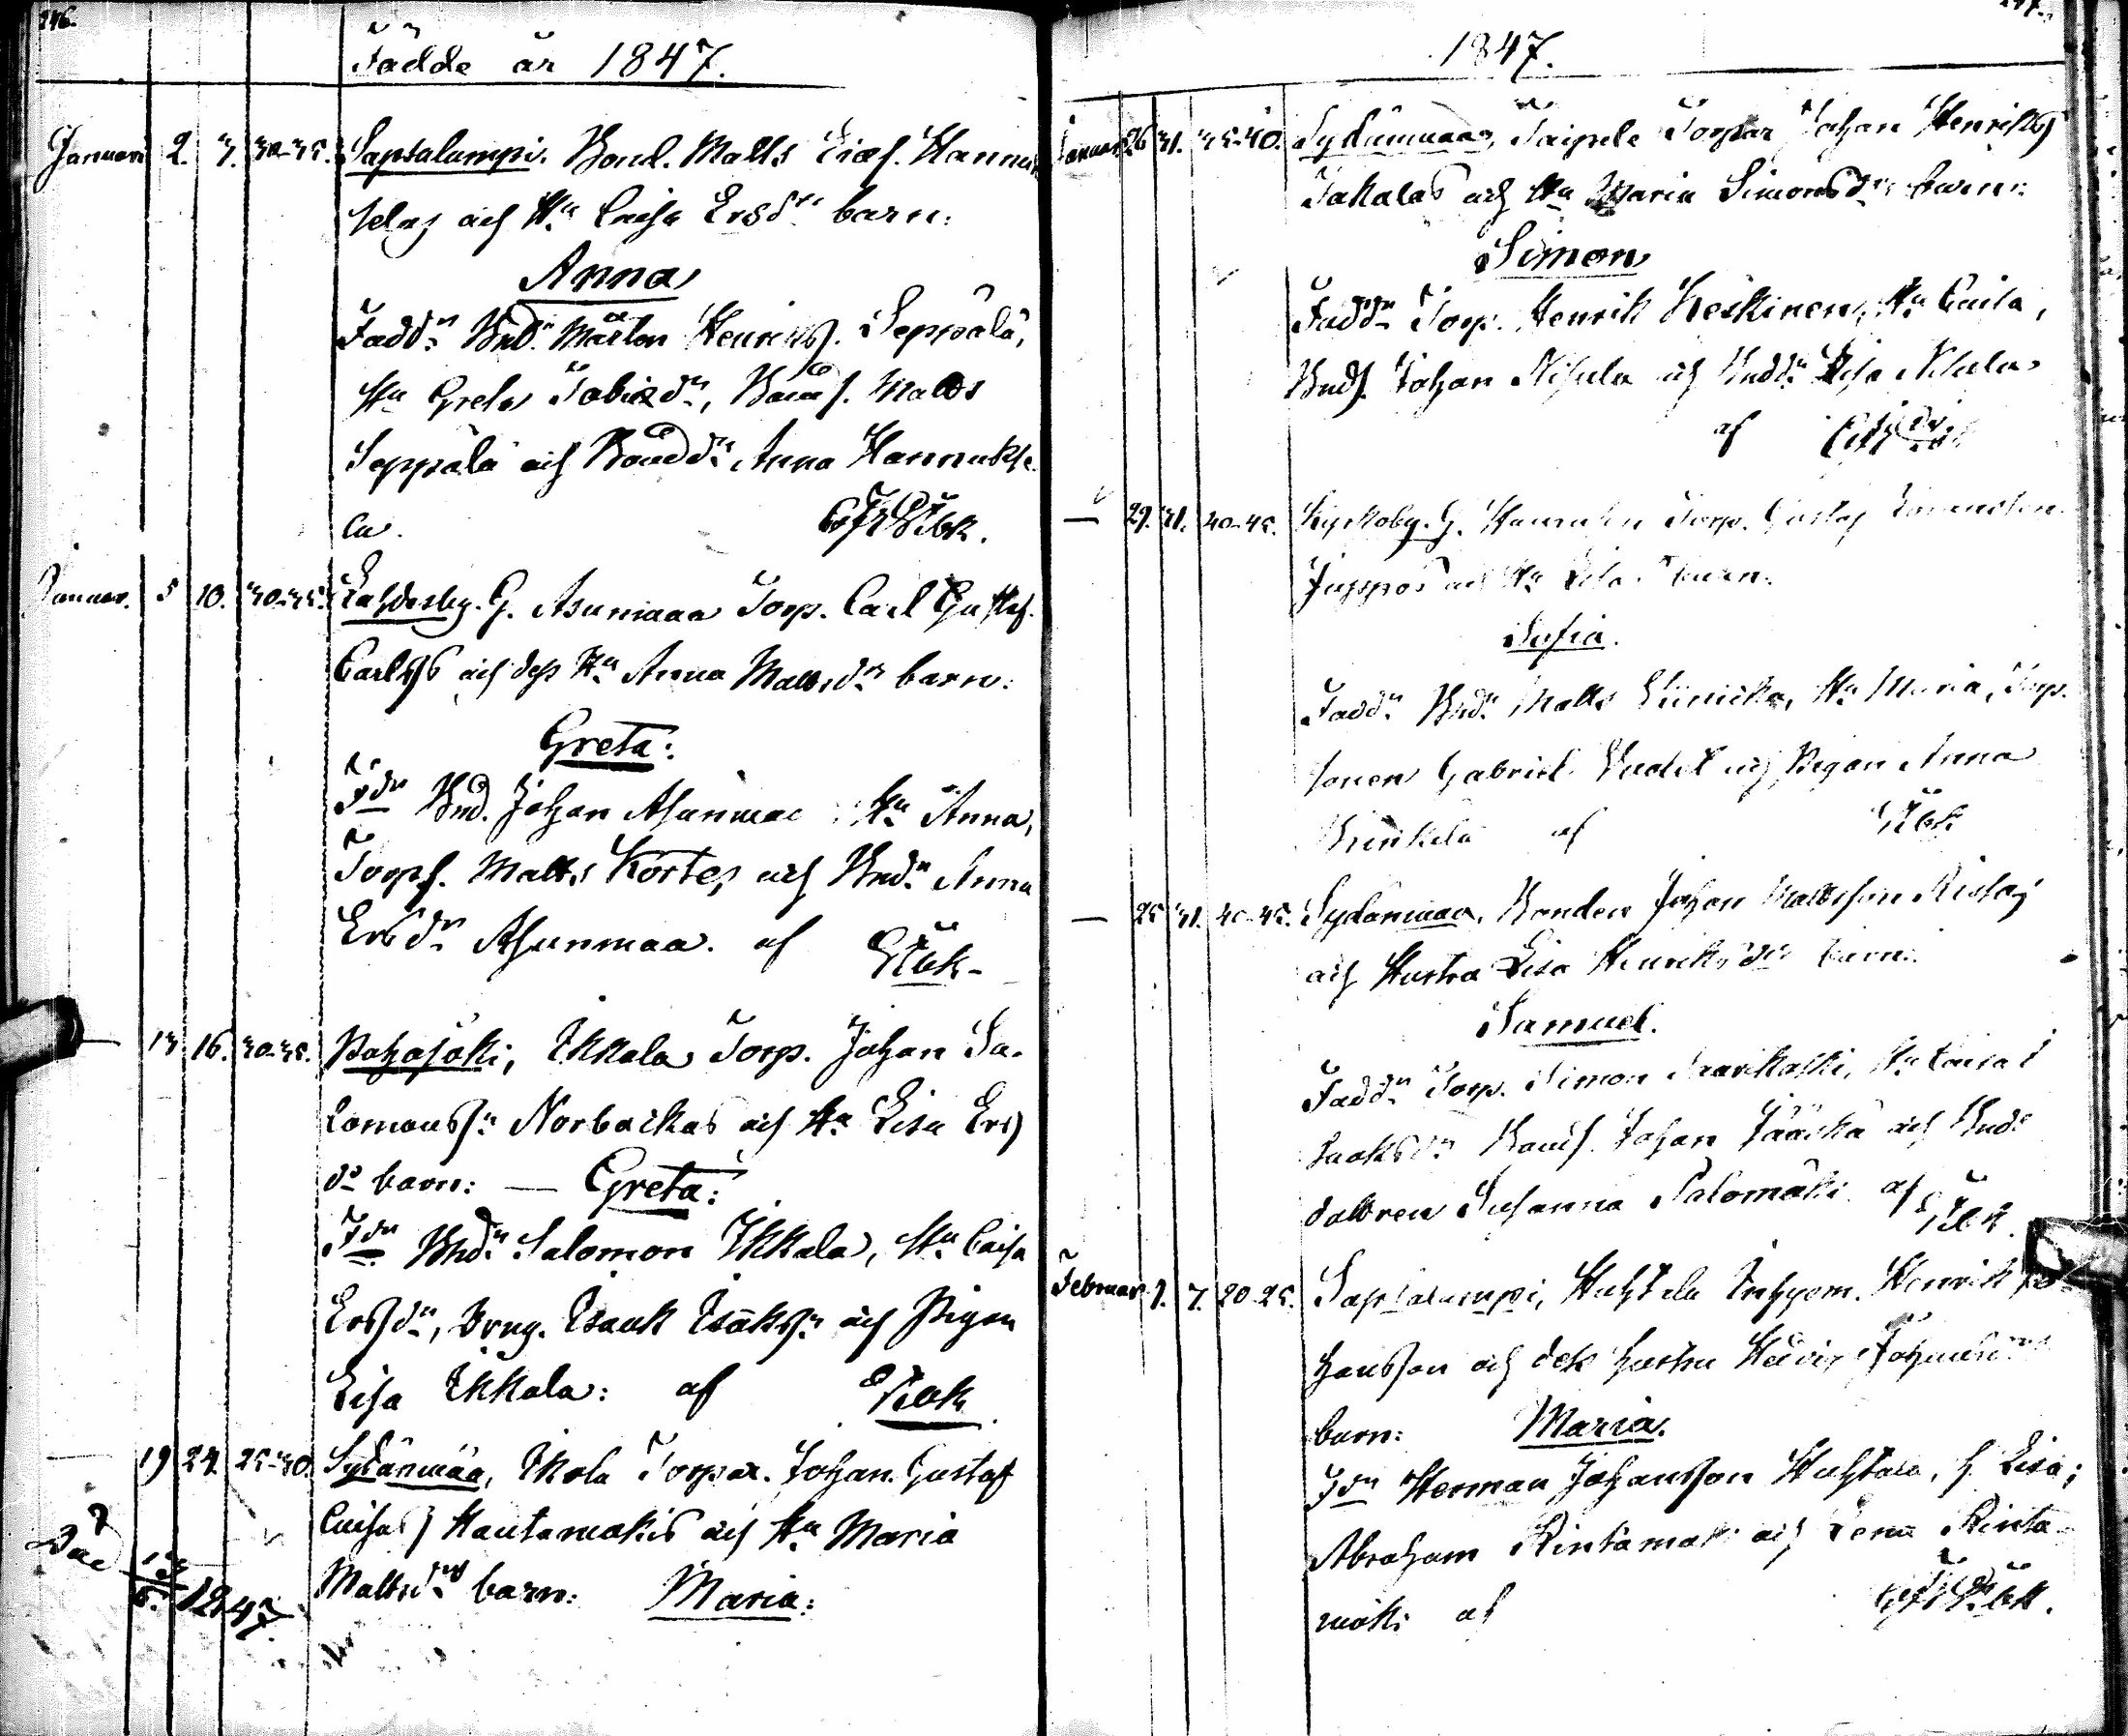 246.
Födde år 1847.
Januari 2. 3. 30-35. Saptalampi. Bond. Matts Hannuk
selas och Hu Caisa Ersdr barn:
Anna
Fadd: Bnd. Mårten Henrikss. Seppälä,
Hu Greta Tobiasdr, Bonds. Matts
Seppälä och Bondd: Anna Hannukse-
la.
Januar. 5 10. 30-35. Lahdesby. G. Asunmaa Torp. Carl Gustaf
Carlss och dess Hu Anna Mattsdr barn:
Greta:
Fdr Bnd. Johan Asunmaa, Hu Anna,
Torps. Matts Kortes och Bnd: Anna
Ersdr Asunmaa. af
— 13. 16. 30-35. Pahajoki, Ikkala Torp. Johan Sa-
lomonss: Norbackas och Hu Lisa Ers
dr barn: — Greta:
Fdr Bnd: Salomon Ikkala, Hu Caisa
Ersdr, Dräng. Isaak Isakss: och Pigan
Lisa Ikkala: af
19 24. 25-30. Sydänmaa, Ikola Torpar. Johan Gustaf
Hautamäkis och Hu Maria
Mattsdr barn: Maria:
1847
247.
1847.
Januar. 26 31. 35-40. Sydänmaa, Taipale Torpar Johan Henrikss
Takalas och Hu Maria Simonsdr barn:
Simon
Fadd: Torp. Henrik Heskinen, Hu Caisa,
Bnds. Johan Nisula och Bndd: Lisa Nisula
af
— 29. 31. 40-45. Kyrkoby. G. Torp. Gustaf
Juppos och Hu Lisa barn:
Sofia.
Fadd: Bnd: Matts Hu Maria, Torp.
sonen Gabriel och Pigan Anna
af
— 25 31. 40-45. Sydänmaa, Bonden Johan Mattsson
och Hustru Lisa Henriksdr barn:
Samuel.
Fadd: Torp. Simon Saarikoski, Hu Caisa I
saksdr Bonds. Johan Jääskä och Bnds
dottren Susanna Salomäki af
Februar 1. 7. 20-25. Saptalampi, Huhtala Inhysm. Henrik Jo
hansson och dess hustru Hedvig Johansdr
barn: Maria.
Fdr Herman Johansson Huhtala, h. Lisa;
Abraham Rintamäki och Lena Rinta-
mäki af